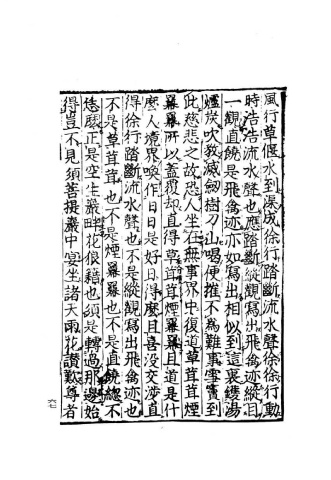 風行草偃水到渠成徐行踏斷流水聲徐徐行動
時浩浩流水聲也應踏斷縱觀寫出飛禽迹縱目
一觀直饒是飛禽迹亦如寫出相似到這裏鑊湯
爐炭吹教滅劒樹刀山喝便摧不為難事雪竇到
此慈悲之故恐人坐在無事界中復道草茸茸煙
羃羃所以蓋覆却直得草茸茸煙羃羃且道是什
麼人境界喚作日日是好日得麼且喜没交渉直
得徐行踏斷流水聲也不是縱觀寫出飛禽迹也
不是草茸茸也不是煙羃羃也不是直饒總不
恁麼正是空生巖畔花狼藉也須是轉過那邊始
得豈不見須菩提巖中宴坐諸天雨花讃歎尊者